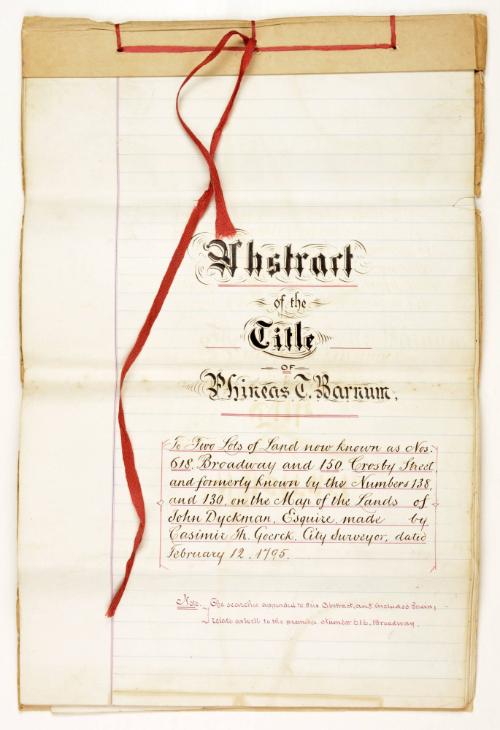 Abstract
of the
Title
OF
Phineas T. Barnum,
To Two Lots of Land now known as Nos.
618, Broadway and 150, Crosby Street,
and formerly known by the Numbers 138,
and 130, on the Map of the Lands of
John Dyckman, Esquire, made by
Casimir Th. Goerck, City Surveyor, dated
February 12, 1795.
Note. The searches appended to this Abstract, and Analyses
relate as well to the premises Number 616, Broadway.